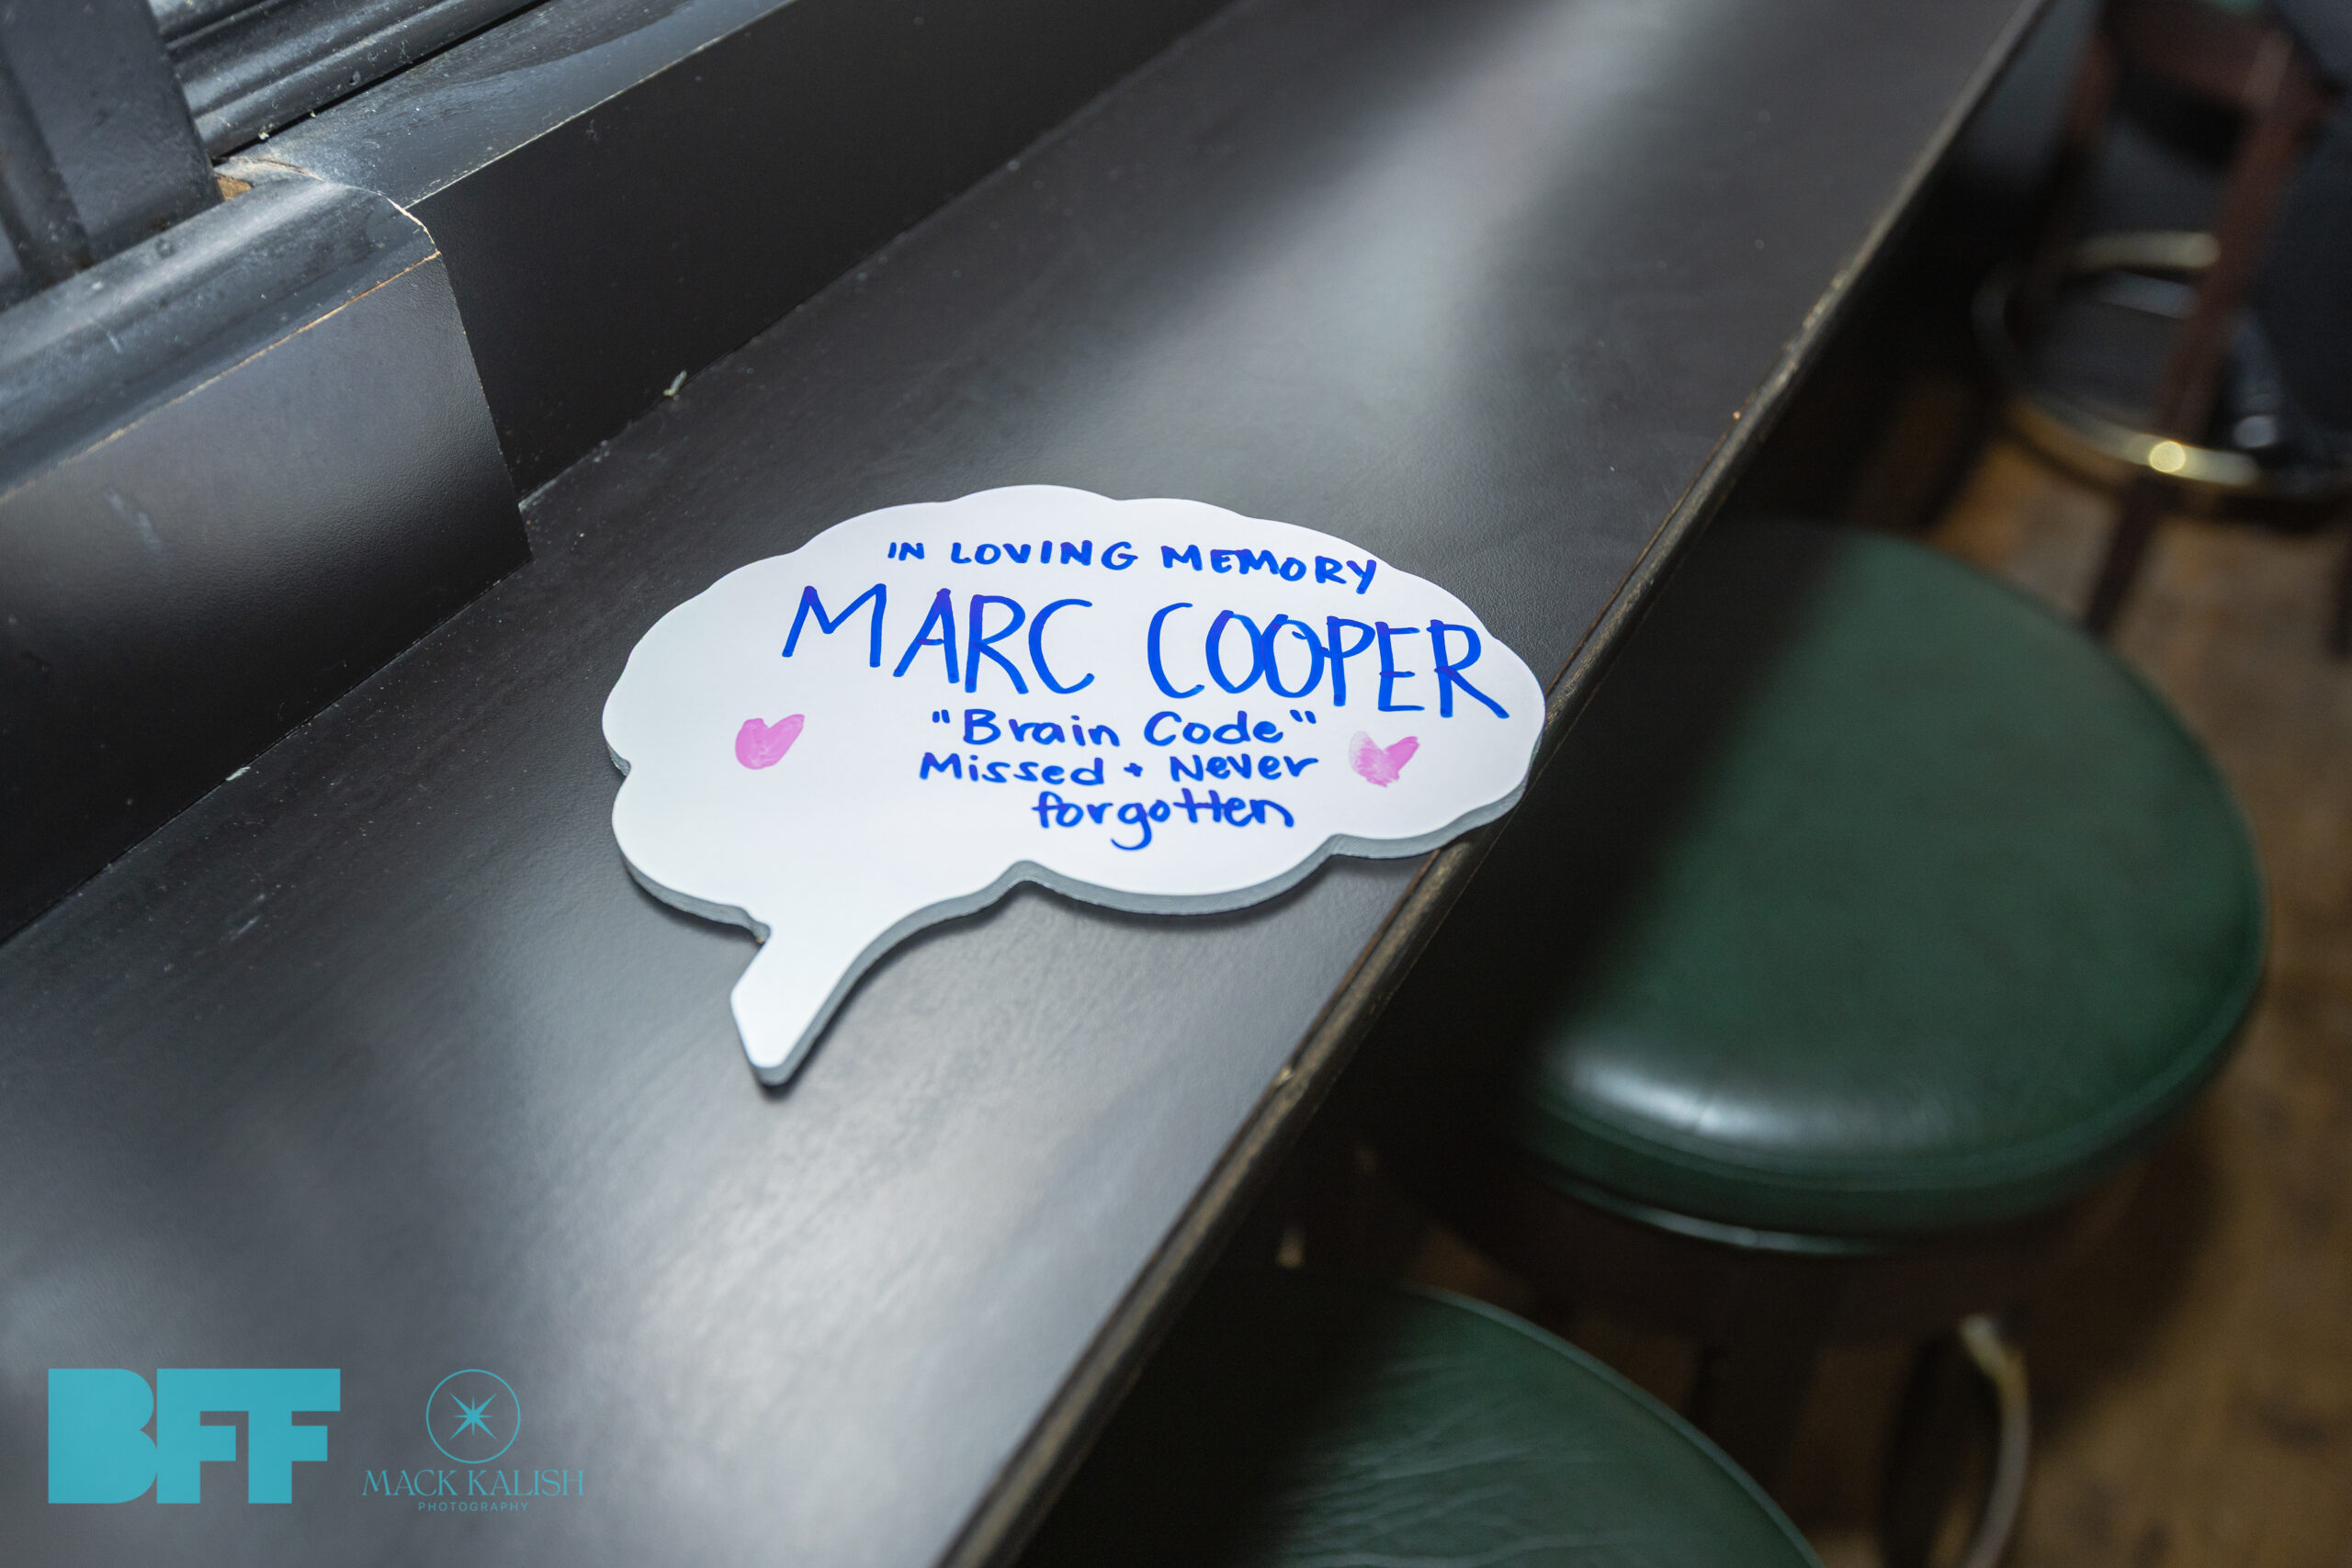 IN LOVING MEMORY
MARC COOPER
"Brain Code"
Missed + Never
forgotten
BFF
MACK KALISH
PHOTOGRAPHY